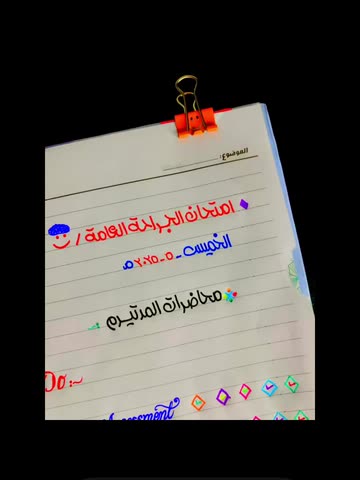 الموضوع:
امتحان الجراحة العامة /
الخميس - ٥ - ٢٠٢٥ م
محاضرات المدتيرم
Do:~
Assessment